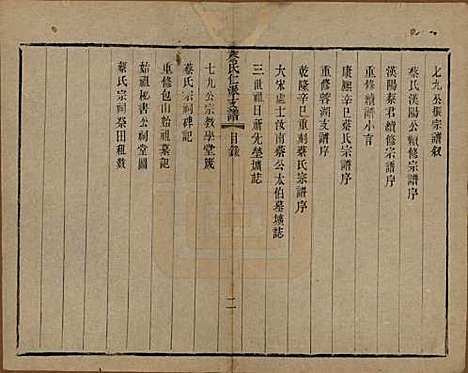 七九公振宗譜敘
蔡氏漢陽公續修宗譜序
漢陽泰君續修宗譜序
重修續譜小言
康熙辛巳蔡氏宗譜序
重修蓉湖支譜序
乾隆辛巳重刺蔡氏宗譜序
大宋處士汝南蔡公太伯墓壙誌
三世祖日新先塋壙誌
蔡氏仁派支譜 目錄 二
七九公宗敎學堂箴
蔡氏宗祠碑記
重修包山始祖墓記
始祖祕書公祠堂圖
蔡氏宗祠祭田租數